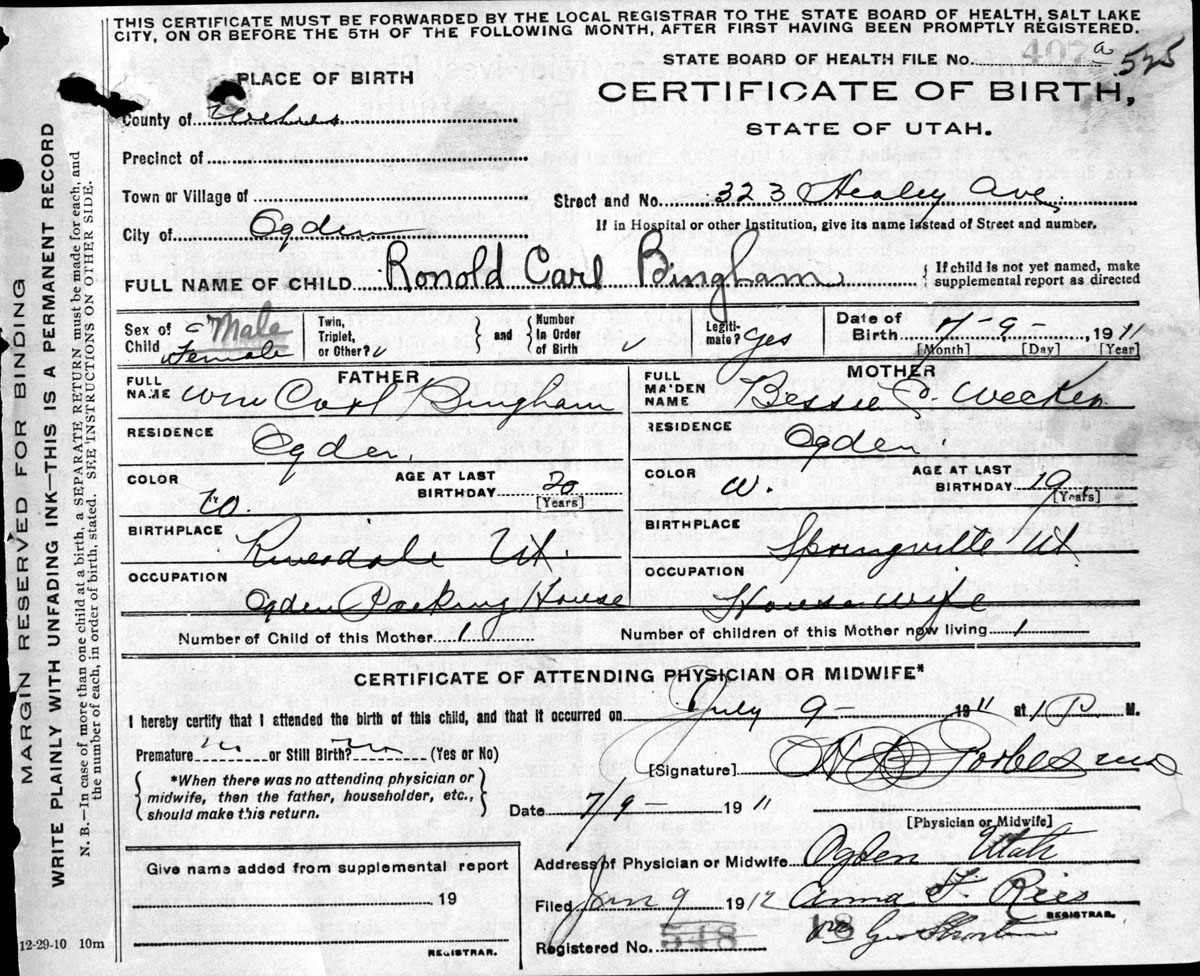 THIS CERTIFICATE MUST BE FORWARDED BY THE LOCAL REGISTRAR TO THE STATE BOARD OF HEALTH, SALT LAKE
CITY, ON OR BEFORE THE 5TH OF THE FOLLOWING MONTH, AFTER FIRST HAVING BEEN PROMPTLY REGISTERED.
STATE BOARD OF HEALTH FILE No. 407 a 525
PLACE OF BIRTH
CERTIFICATE OF BIRTH,
STATE OF UTAH.
County of Weber
Precinct of
Town or Village of
Street and No. 323 Healey Ave.
City of Ogden
If in Hospital or other Institution, give its name instead of Street and number.
FULL NAME OF CHILD Ronold Carl Bingham
If child is not yet named, make
supplemental report as directed
Sex of Child Male Female
Twin, Triplet, or Other?
and
Number in Order of Birth
Legitimate? yes
Date of Birth 7-9- 1911
[Month] [Day] [Year]
FATHER
FULL NAME Wm Carl Bingham
RESIDENCE Ogden.
COLOR W.
AGE AT LAST BIRTHDAY 20
[Years]
BIRTHPLACE Riverdale Ut.
OCCUPATION Ogden Packing House
MOTHER
FULL MAIDEN NAME Bessie
RESIDENCE Ogden.
COLOR W.
AGE AT LAST BIRTHDAY 19
[Years]
BIRTHPLACE Springville Ut
OCCUPATION House wife
Number of Child of this Mother 1 Number of children of this Mother now living 1
CERTIFICATE OF ATTENDING PHYSICIAN OR MIDWIFE*
I hereby certify that I attended the birth of this child, and that it occurred on July 9- 1911 at 1 P M.
Premature no or Still Birth? no (Yes or No)
[Signature] Forbes MD
*When there was no attending physician or
midwife, then the father, householder, etc.,
should make this return.
Date 7/9- 1911
[Physician or Midwife]
Address of Physician or Midwife Ogden Utah
Give name added from supplemental report
19
REGISTRAR.
Filed Jan 9 1912 Anna F. Ries
REGISTRAR.
Registered No. 548
12-29-10 10m
MARGIN RESERVED FOR BINDING
WRITE PLAINLY WITH UNFADING INK—THIS IS A PERMANENT RECORD
N. B.—In case of more than one child at a birth, a SEPARATE RETURN must be made for each, and
the number of each, in order of birth, stated. SEE INSTRUCTIONS ON OTHER SIDE.